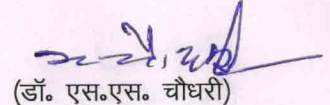 (डॉ॰ एस॰एस॰ चौधरी)